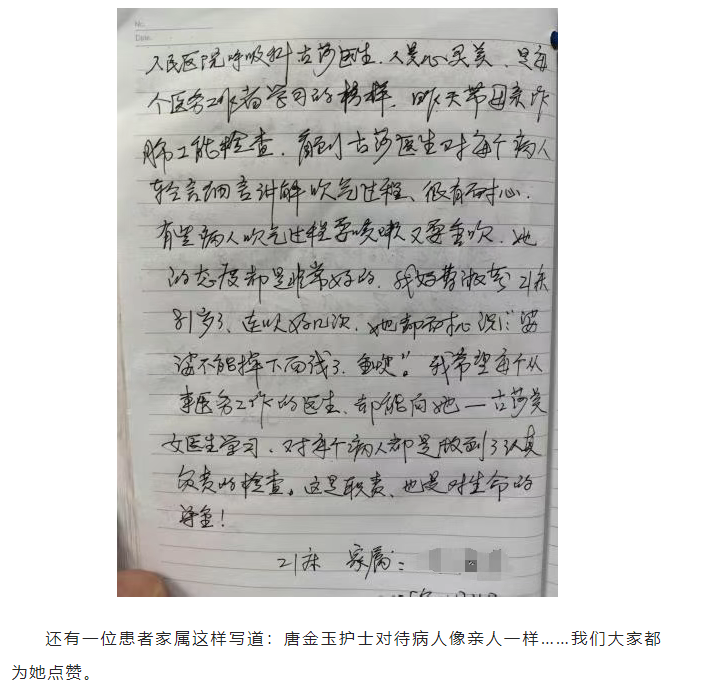 No.
Date.
人民医院呼吸科古莎医生，人美心灵美，是每
个医务工作者学习的榜样，昨天带母亲作
肺功能检查，看到古莎医生对每个病人
轻言细言讲解吹气过程、很有耐心.
有些病人吹气过程要咳嗽又要重吹，她
的态度都是非常好的，我妈 21床
81岁了、连吹好几次，她都耐心说："婆
婆不能掉下面线了，重吹"。我希望每个从
事医务工作的医生、都能向她一古莎美
女医生学习，对每个病人都是做到了认真
负责的检查。这是职责、也是对生命的
尊重！
21床 家属：
还有一位患者家属这样写道：唐金玉护士对待病人像亲人一样……我们大家都
为她点赞。